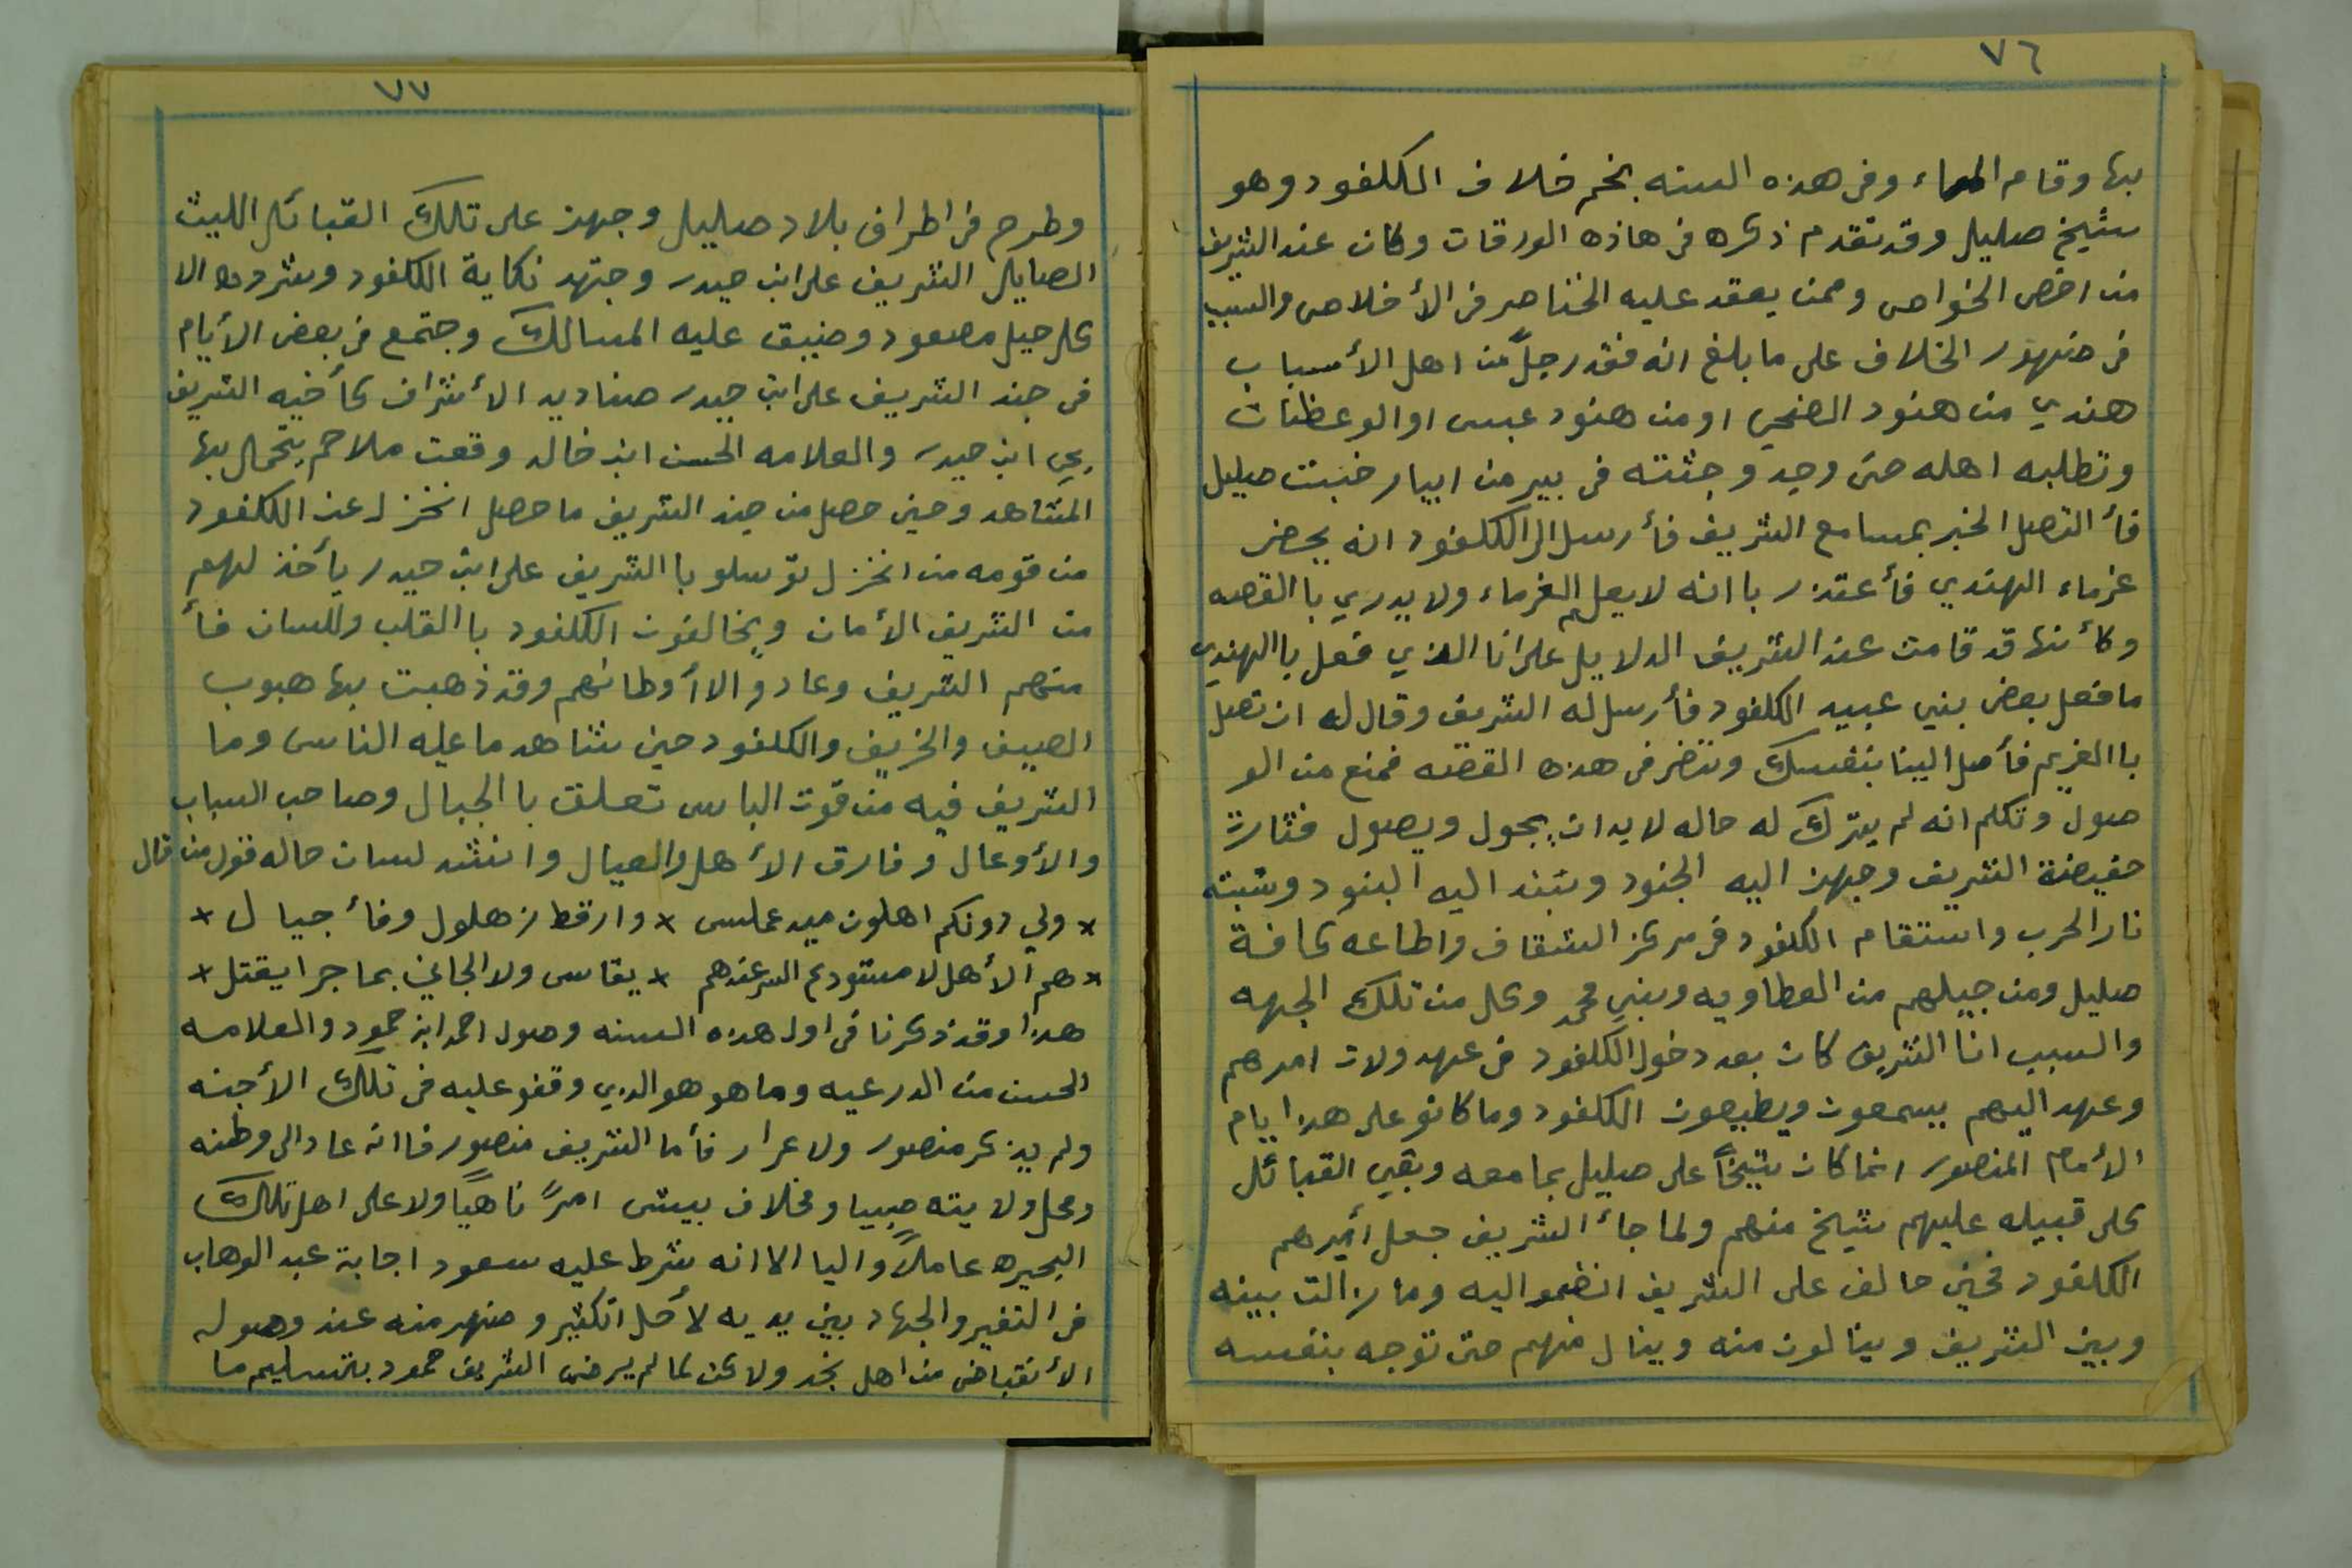 ٧٦
بها وقام الماء وفي هذه السنه نجم خلاف الكلفود وهو
شيخ صليل وقد تقدم ذكره في هاذه الورقات وكان عند الشريف
من اخص الخواص وممن يعقد عليه الخناصر في الأخلاص والسبب
في ضهور الخلاف على ما بلغ انه فقد رجلً من اهل الأسباب
هندي من هنود الضحي او من هنود عبس او الوعظات
وتطلبه اهله حتى وجد وجثته في بير من ابيار خبت صليل
فأ التصل الخبر بمسامع الشريف فأرسل الى الكلفود انه يحضر
غرماء الهندي فأعتذر با انه لا يعلم الغرماء ولا يدري با القصه
وكأنها قد قامت عند الشريف الدلايل على انا الذي فعل با الهندي
ما فعل بعض بني عبيد الكلفود فأرسل له الشريف وقال له ان تصل
با الغريم فأصل الينا بنفسك وننضر في هذه القضه فمنع من الو
صول وتكلم انه لم يترك له حاله لابد ان يجول ويصول فثارت
حفيضة الشريف وجهز اليه الجنود وشد اليه البنود وشبة
نار الحرب واستقام الكلفود في مركز الشقاق واطاعه كافة
صليل ومن جيلهم من العطاويه وبني محمد وكل من تلك الجهه
والسبب انا الشريف كان بعد دخول الكلفود في عهد ولات امرهم
وعهد اليهم يسمعون ويطيعون الكلفود وما كانو على هذا ايام
الأمام المنصور انما كان شيخاً على صليل بجامعه وبقي القبائل
كل قبيله عليهم شيخ منهم ولما جأ الشريف جعل أميرهم
الكلفود فحين خالف على الشريف انضمو اليه وما زالت بينه
وبين الشريف وينالون منه وينال منهم حتى توجه بنفسه
٧٧
وطرح في اطراف بلاد صليل وجهز على تلك القبائل الليث
الصايل الشريف على ابن حيدر وجتهد نكاية الكلفود وشروده الا
كل جبل مصعود وضيق عليه المسالك وجتمع في بعض الأيام
في جند الشريف على ابن حيدر صناديد الأشراف كأخيه الشريف
يحي ابن حيدر والعلامه الحسن ابن خالد وقعت ملاحم يتحمال بها
المشاهد وحين حصل من جند الشريف ما حصل انخزل عن الكلفود
من قومه من انخزل توسلو با الشريف على ابن حيدر يأخذ لهم
من الشريف الأمان ويخالفون الكلفود با القلب وللسان فأ
منهم الشريف وعادو الا أوطانهم وقد ذهبت بها هبوب
الصيف والخريف والكلفود حين شاهد ما عليه الناس وما
الشريف فيه من قوت الباس تعلق با الجبال وصاحب السباب
والأوعال وفارق الأهل والعيال وانشد لسان حاله قول من قال
× ولي دونكم اهلون سيد عملس × وارقط زهلول وفأ جيال ×
× هم الأهل لا مستودع السر عندهم × يقاس ولا الجاني بما جرا يقتل ×
هذا وقد ذكرنا في اول هذه السنه وصول احمد ابن حمود والعلامه
الحسن من الدرعيه وما هو هو الدي وقفو عليه في تلك الأجنه
ولم يذكر منصور ولا عرار فأما الشريف منصور فاانه عاد الى وطنه
ومحل ولايته صبيا ومخلاف بيش امرً ناهياً ولا على اهل تلك
البحيره عاملاً واليا الا انه شرط عليه سعود اجابة عبد الوهاب
في النفير والجهاد بين يديه لأكل اتكثير وضهر منه عند وصوله
الأنقباض من اهل نجد ولا كن لما لم يرضى الشريف حمود بتسليم ما